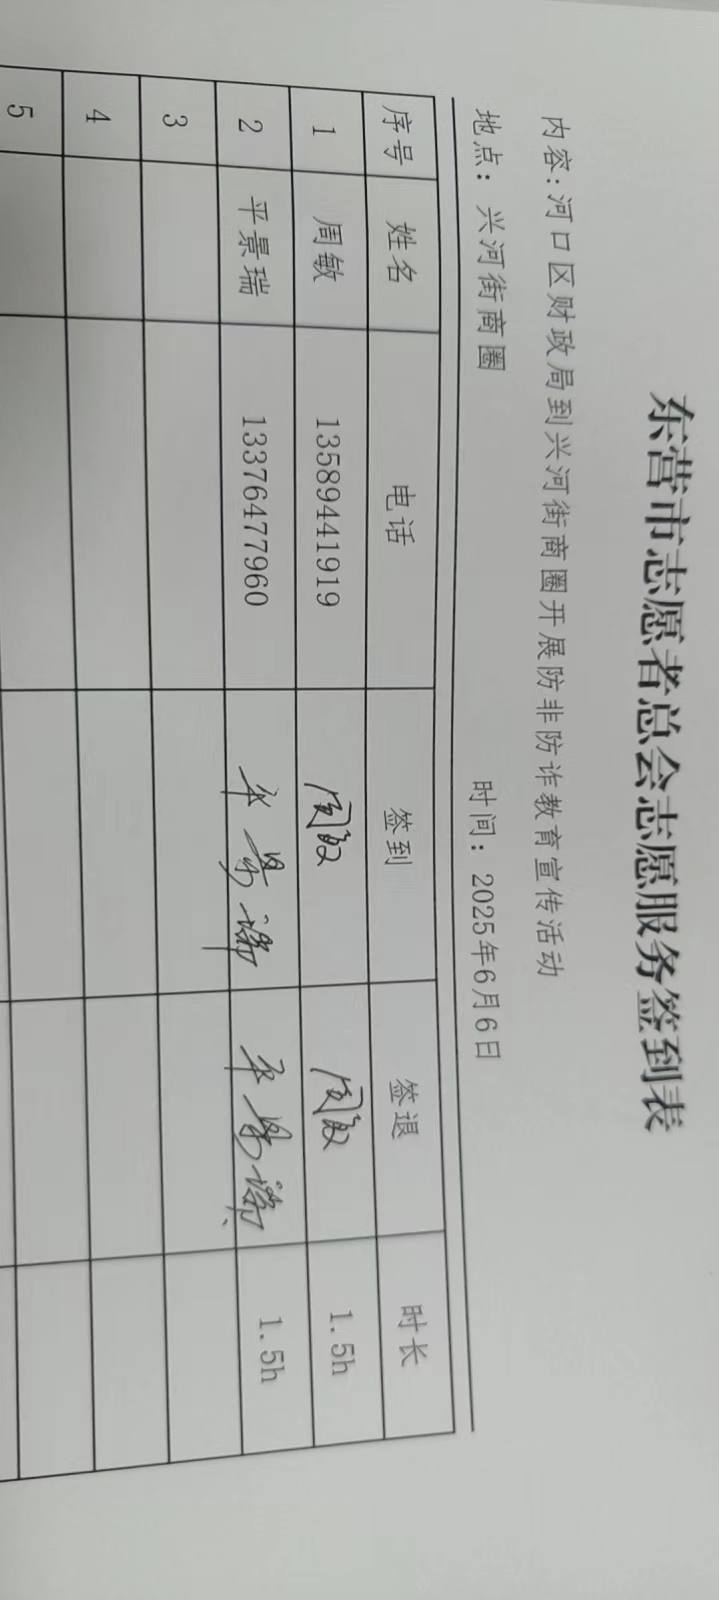 东营市志愿者总会志愿服务签到表
内容：河口区财政局到兴河街商圈开展防非防诈教育宣传活动
地点：兴河街商圈 时间：2025年6月6日
序号 姓名 电话 签到 签退 时长
1 周敏 13589441919 周敏 周敏 1.5h
2 平景瑞 13376477960 平景瑞 平景瑞 1.5h
3
4
5